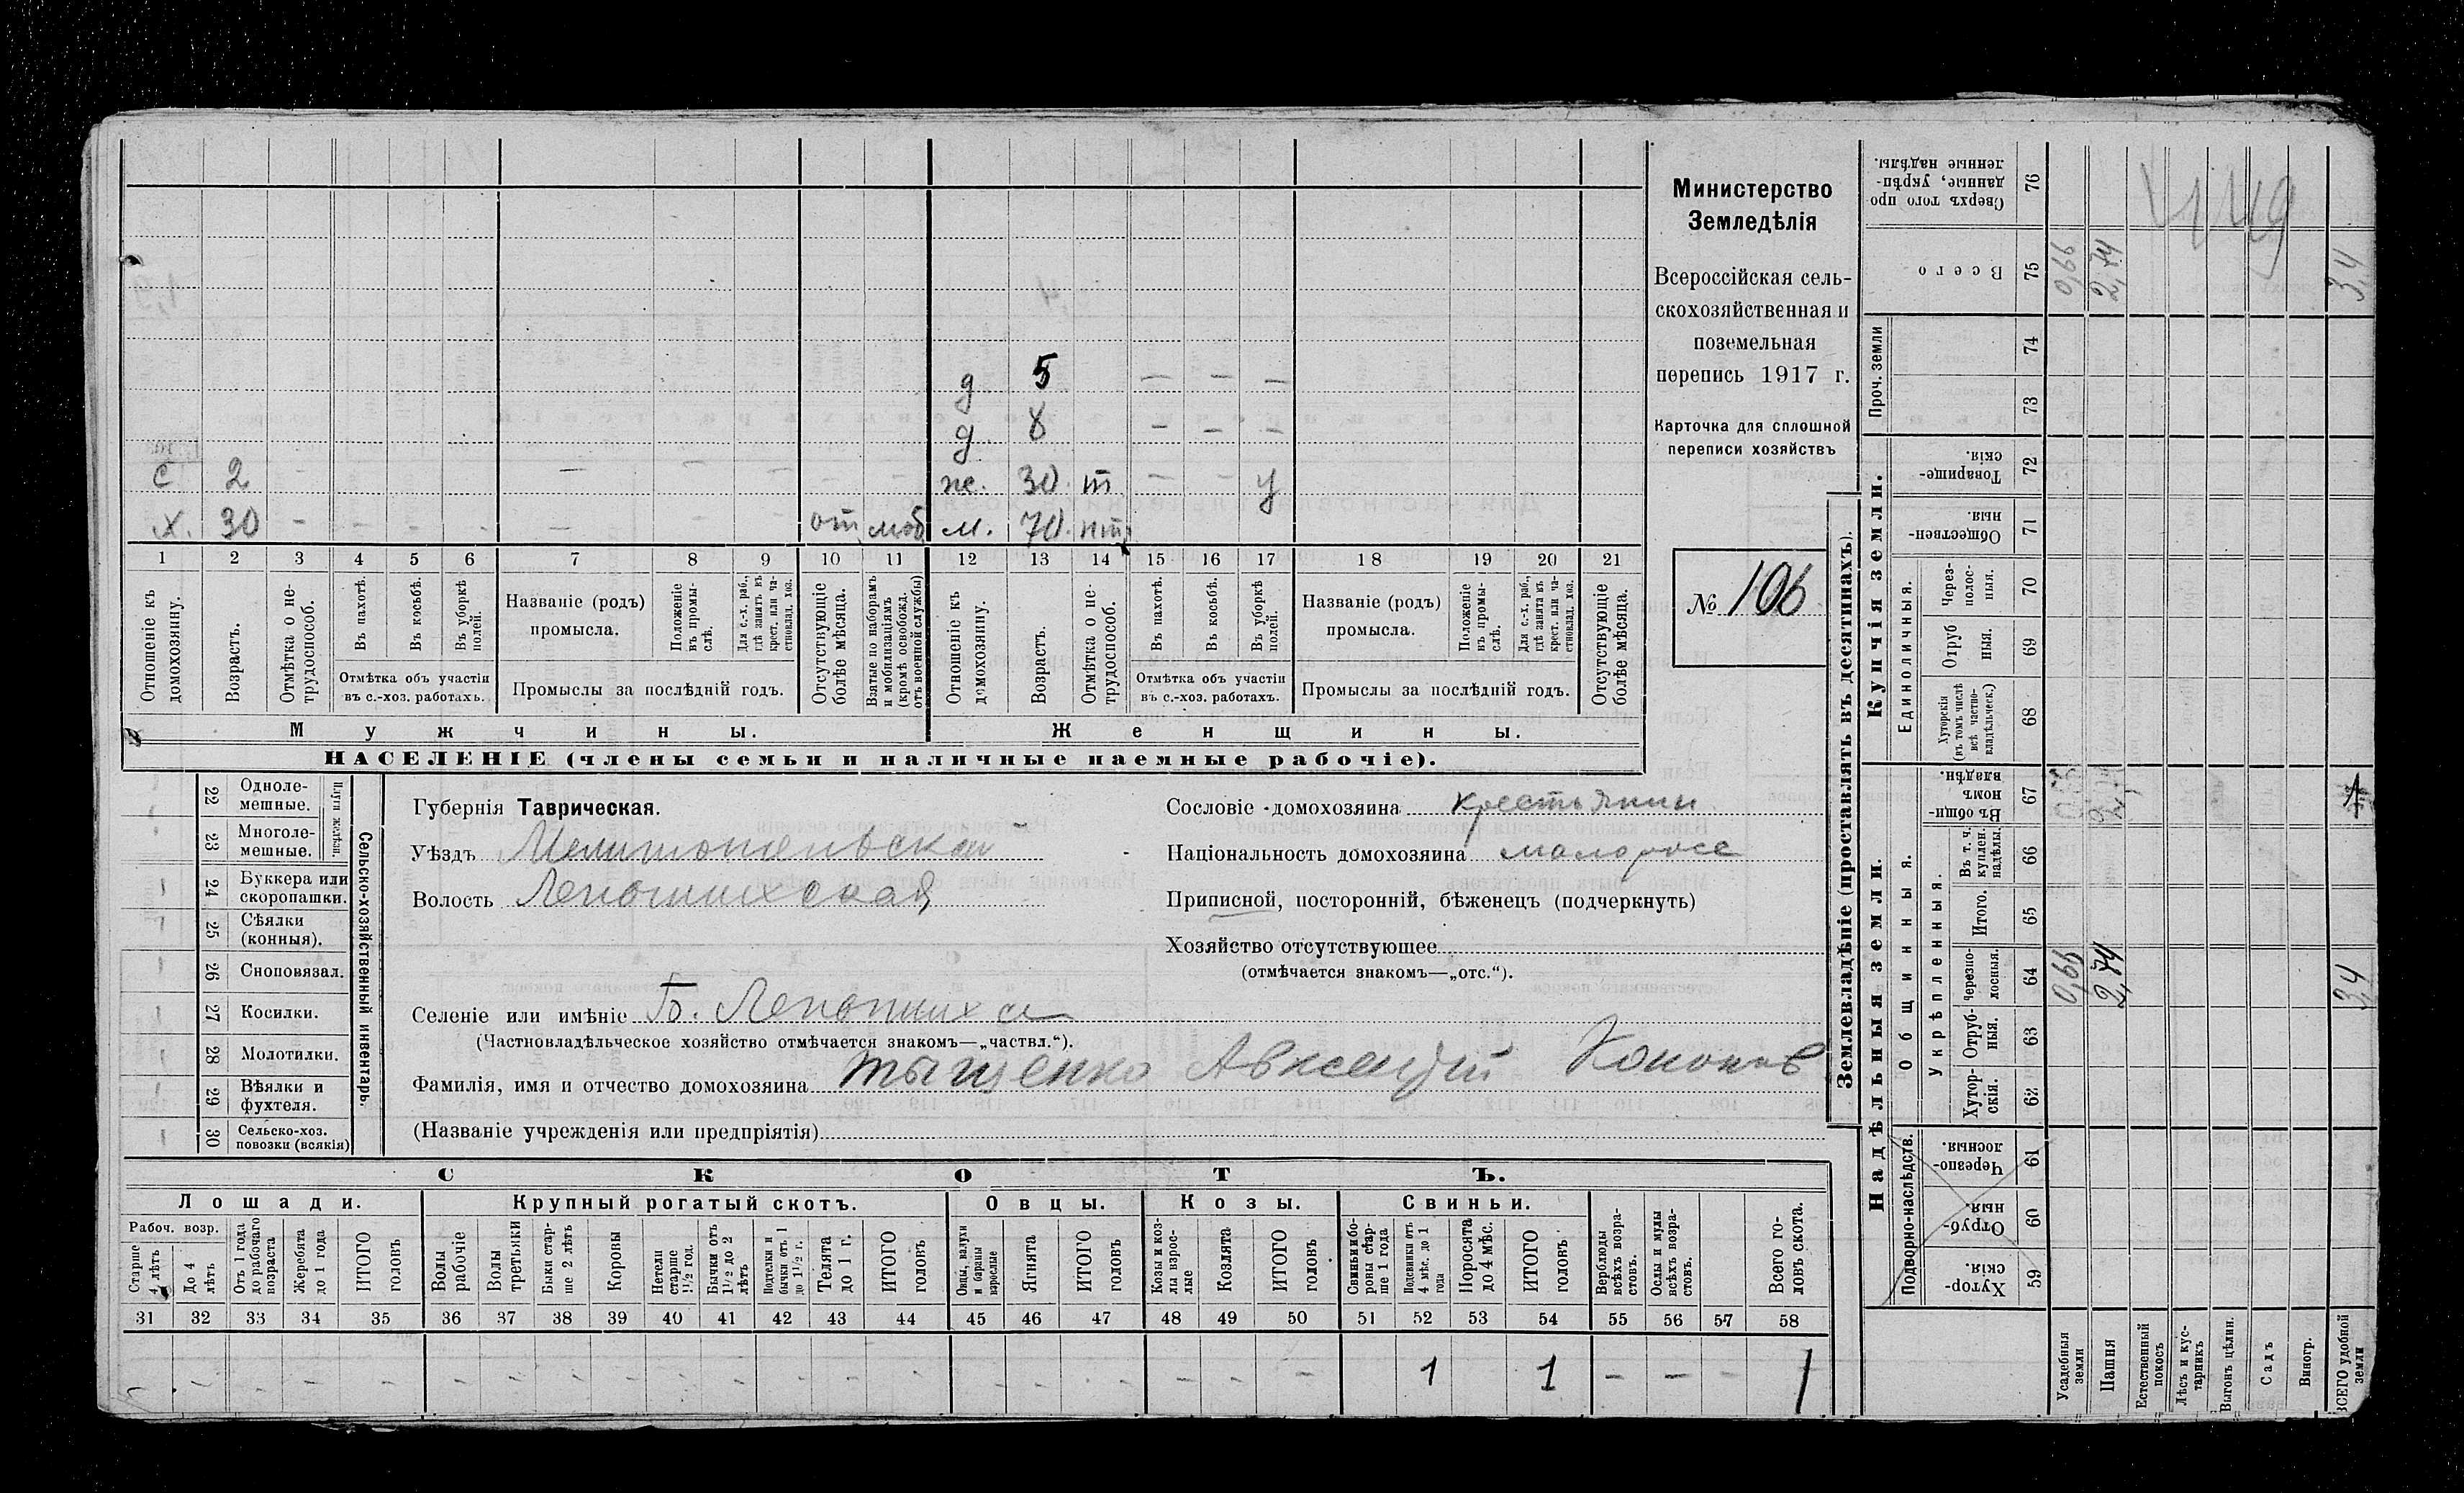 Министерство
Земледѣлія
Всероссійская сель-
скохозяйственная и
поземельная
перепись 1917 г.
Карточка для сплошной
переписи хозяйствъ
№ 106
д 5 — — —
д 8 — — —
с 2 — — — — ж. 30 т — — у
х. 30 — — — — — — — от моб м. 70 нтр
1 2 3 4 5 6 7 8 9 10 11 12 13 14 15 16 17 18 19 20 21
Отношеніе къ домохозяину.
Возрастъ.
Отмѣтка о не-трудоспособ.
Въ пахотѣ.
Въ косьбѣ.
Въ уборкѣ полей.
Отмѣтка объ участіи въ с.-хоз. работахъ.
Названіе (родъ) промысла.
Положеніе въ промы-слѣ.
Для с.-х. раб., гдѣ занятъ въ крест. или ча-стновлад. хоз.
Промыслы за послѣдній годъ.
Отсутствующіе болѣе мѣсяца.
Взятые по наборамъ и мобилизаціямъ (кромѣ освобожд. отъ военной службы)
Отношеніе къ домохозяину.
Возрастъ.
Отмѣтка о не-трудоспособ.
Въ пахотѣ.
Въ косьбѣ.
Въ уборкѣ полей.
Отмѣтка объ участіи въ с.-хоз. работахъ.
Названіе (родъ) промысла.
Положеніе въ промы-слѣ.
Для с.-х. раб., гдѣ занята въ крест. или ча-стновлад. хоз.
Промыслы за послѣдній годъ.
Отсутствующіе болѣе мѣсяца.
Мужчины. Женщины.
НАСЕЛЕНІЕ (члены семьи и наличные наемные рабочіе).
Сельско-хозяйственный инвентарь.
Плуги желѣзн.
22 Одноле-мешные.
23 Многоле-мешные.
24 Буккера или скоропашки.
25 Сѣялки (конныя).
26 Сноповязал.
27 Косилки.
28 Молотилки.
29 Вѣялки и фухтеля.
30 Сельско-хоз. повозки (всякія)
Губернія Таврическая.
Уѣздъ Мелитопольской
Волость Лепетихская
Сословіе домохозяина крестьянин
Національность домохозяина малоросс
Приписной, посторонній, бѣженецъ (подчеркнуть)
Хозяйство отсутствующее
(отмѣчается знакомъ—„отс.“).
Селеніе или имѣніе Б. Лепетиха
(Частновладѣльческое хозяйство отмѣчается знакомъ—„частвл.“).
Фамилія, имя и отчество домохозяина Тыщенко Авксентий Кононов
(Названіе учрежденія или предпріятія)
СКОТЪ.
Лошади. Крупный рогатый скотъ. Овцы. Козы. Свиньи.
Рабоч. возр.
Старше 4 лѣтъ
До 4 лѣтъ
Отъ 1 года до рабочаго возраста
Жеребята до 1 года
ИТОГО головъ
Волы рабочіе
Волы третьяки
Быки стар-ше 2 лѣтъ
Коровы
Нетели старше 1 1/2 год.
Бычки отъ 1 1/2 до 2 лѣтъ
Подтелки и бычки отъ 1 до 1 1/2 г.
Телята до 1 г.
ИТОГО головъ
Овцы, валухи и бараны взрослые
Ягнята
ИТОГО головъ
Козы и коз-лы взрос-лые
Козлята
ИТОГО головъ
Свиньи и бо-ровы стар-ше 1 года
Подсвинки отъ 4 мѣс. до 1 года
Поросята до 4 мѣс.
ИТОГО головъ
Верблюды всѣхъ возра-стовъ.
Ослы и мулы всѣхъ возра-стовъ.
Всего го-ловъ скота.
31 32 33 34 35 36 37 38 39 40 41 42 43 44 45 46 47 48 49 50 51 52 53 54 55 56 57 58
1 1 — — — 1
Землевладѣніе (проставлять въ десятинахъ).
Надѣльныя земли.
Купчія земли.
Проч. земли
Подворно-наслѣдств.
Общинныя.
Укрѣпленныя.
Единоличныя.
Хутор-скія. 59
Отруб-ныя. 60
Черезпо-лосныя. 61
Хутор-скія. 62
Отруб-ныя. 63
Черезпо-лосныя. 64 0,66 2,74 3,4
Итого. 65
Въ т. ч. куплен. надѣлы. 66
Въ общи-номъ владѣн. 67
Хуторскія (въ томъ числѣ всѣ частно-владѣльческ.) 68
Отруб ныя. 69
Через-полос-ныя. 70
Обществен-ныя. 71
Товарище-скія. 72
73
74
Всего 75 0,66 2,74 3,4
Сверхъ того про данные, укрѣп-ленные надѣлы. 76
Усадебныя земли
Пашня
Естественный покосъ
Лѣсъ и кус-тарникъ
Выгонъ цѣлин.
Садъ
Виногр.
ВСЕГО удобной земли